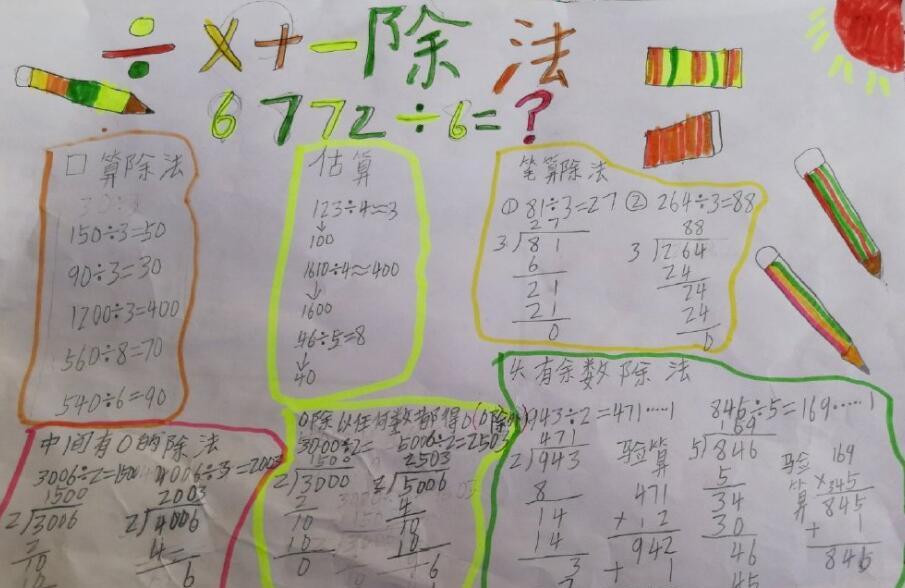 ÷ × + - 除法
6772÷6=?
口算除法
150÷3=50
90÷3=30
1200÷3=400
560÷8=70
540÷6=90
估算
123÷4≈3
↓
100
1610÷4≈400
↓
1600
46÷5=8
↓
40
笔算除法
① 81÷3=27 ② 264÷3=88
27
3 81
6
21
21
0
88
3 264
24
24
24
0
中间有0的除法
3006÷2=1500
1500
2 3006
2
10
10
2003
2 4006
4
6
0除以任何数都得0(0除外)
3000÷2= 5006÷2=2503
1500
2 3000
2
10
10
0
2503
2 5006
4
10
10
6
有余数除法
943÷2=471……1 846÷5=169……1
471
2 943
8
14
14
3
验算
471
942
+ 1
169
5 846
5
34
30
46
45
验算
169
845
+ 1
846